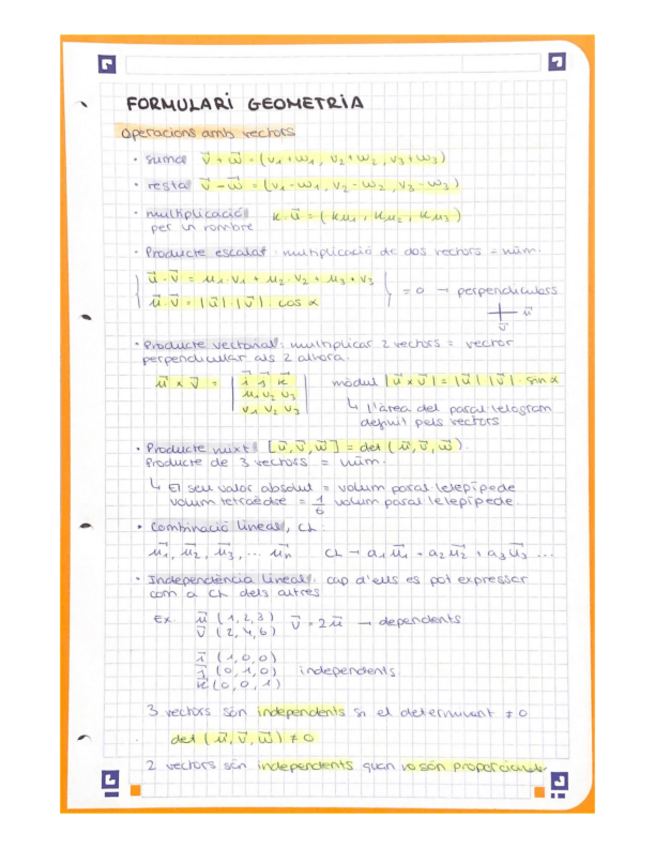 FORMULARI GEOMETRIA
Operacions amb vectors
· suma v⃗ + w⃗ = (v₁+w₁, v₂+w₂, v₃+w₃)
· resta v⃗ - w⃗ = (v₁-w₁, v₂-w₂, v₃-w₃)
· multiplicació k·u⃗ = (ku₁, ku₂, ku₃)
per un nombre
· Producte escalar: multiplicació de dos vectors = núm.
u⃗·v⃗ = u₁·v₁ + u₂·v₂ + u₃+v₃
u⃗·v⃗ = |u⃗|·|v⃗|·cos α
= 0 → perpendiculars
u⃗
v⃗
· Producte vectorial: multiplicar 2 vectors = vector
perpendicular als 2 alhora.
u⃗ x v⃗ = | i⃗ j⃗ k⃗ | mòdul |u⃗ x v⃗| = |u⃗| |v⃗| · sin α
u₁ u₂ u₃
v₁ v₂ v₃
↳ l'àrea del paral·lelogram
definit pels vectors
· Producte mixt [u⃗, v⃗, w⃗] = det (u⃗, v⃗, w⃗).
Producte de 3 vectors = núm.
↳ El seu valor absolut = volum paral·lelepípede
volum tetraedre = 1/6 volum paral·lelepípede.
· Combinació lineal, CL:
u⃗₁, u⃗₂, u⃗₃, ... u⃗n CL → a₁u⃗₁ + a₂u⃗₂ + a₃u⃗₃ ...
· Independència lineal: cap d'eus es pot expressar
com a CL dels altres
Ex. u⃗ (1,2,3) v⃗ = 2u⃗ → dependents
v⃗ (2,4,6)
i⃗ (1,0,0)
j⃗ (0,1,0) independents
k⃗ (0,0,1)
3 vectors són independents si el determinant ≠ 0
det (u⃗, v⃗, w⃗) ≠ 0
2 vectors són independents quan no són proporcionals